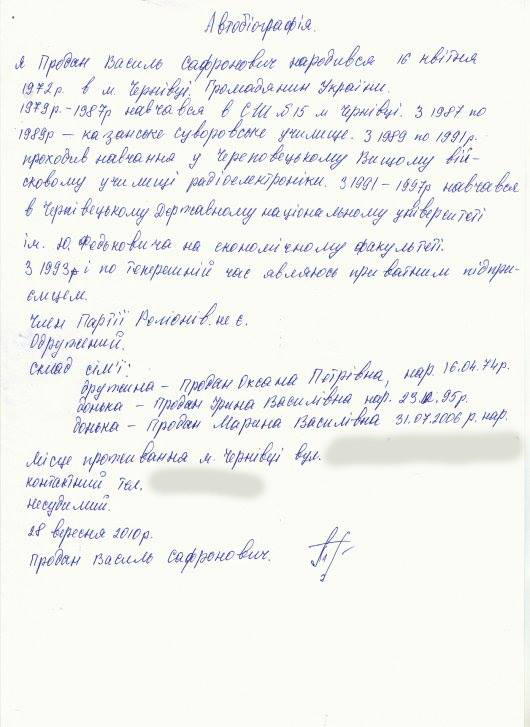 Автобіографія.
Я Продан Василь Сафронович народився 16 квітня
1972р. в м. Чернівці. Громадянин України.
1979р.-1987р навчався в СШ №15 м Чернівці. З 1987 по
1989р – казанське суворовське училище. З 1989 по 1991р.
проходив навчання у Череповецькому Вищому вій-
ськовому училищі радіоелектроніки. З 1991 – 1997р навчався
в Чернівецькому Державному національному університеті
ім. Ю. Федьковича на економічному факультеті.
З 1993р і по теперешній час являюсь приватним підпри-
ємцем.
Член Партії Регіонів. не є.
Одружений.
Склад сім'ї:
дружина – Продан Оксана Петрівна, нар. 16.04.74р.
донька – Продан Ірина Василівна нар. 95р.
донька – Продан Марина Василівна 31.07.2006 р. нар.
Місце проживання м. Чернівці вул.
контактний тел.
несудимий.
28 вересня 2010р.
Продан Василь Сафронович.